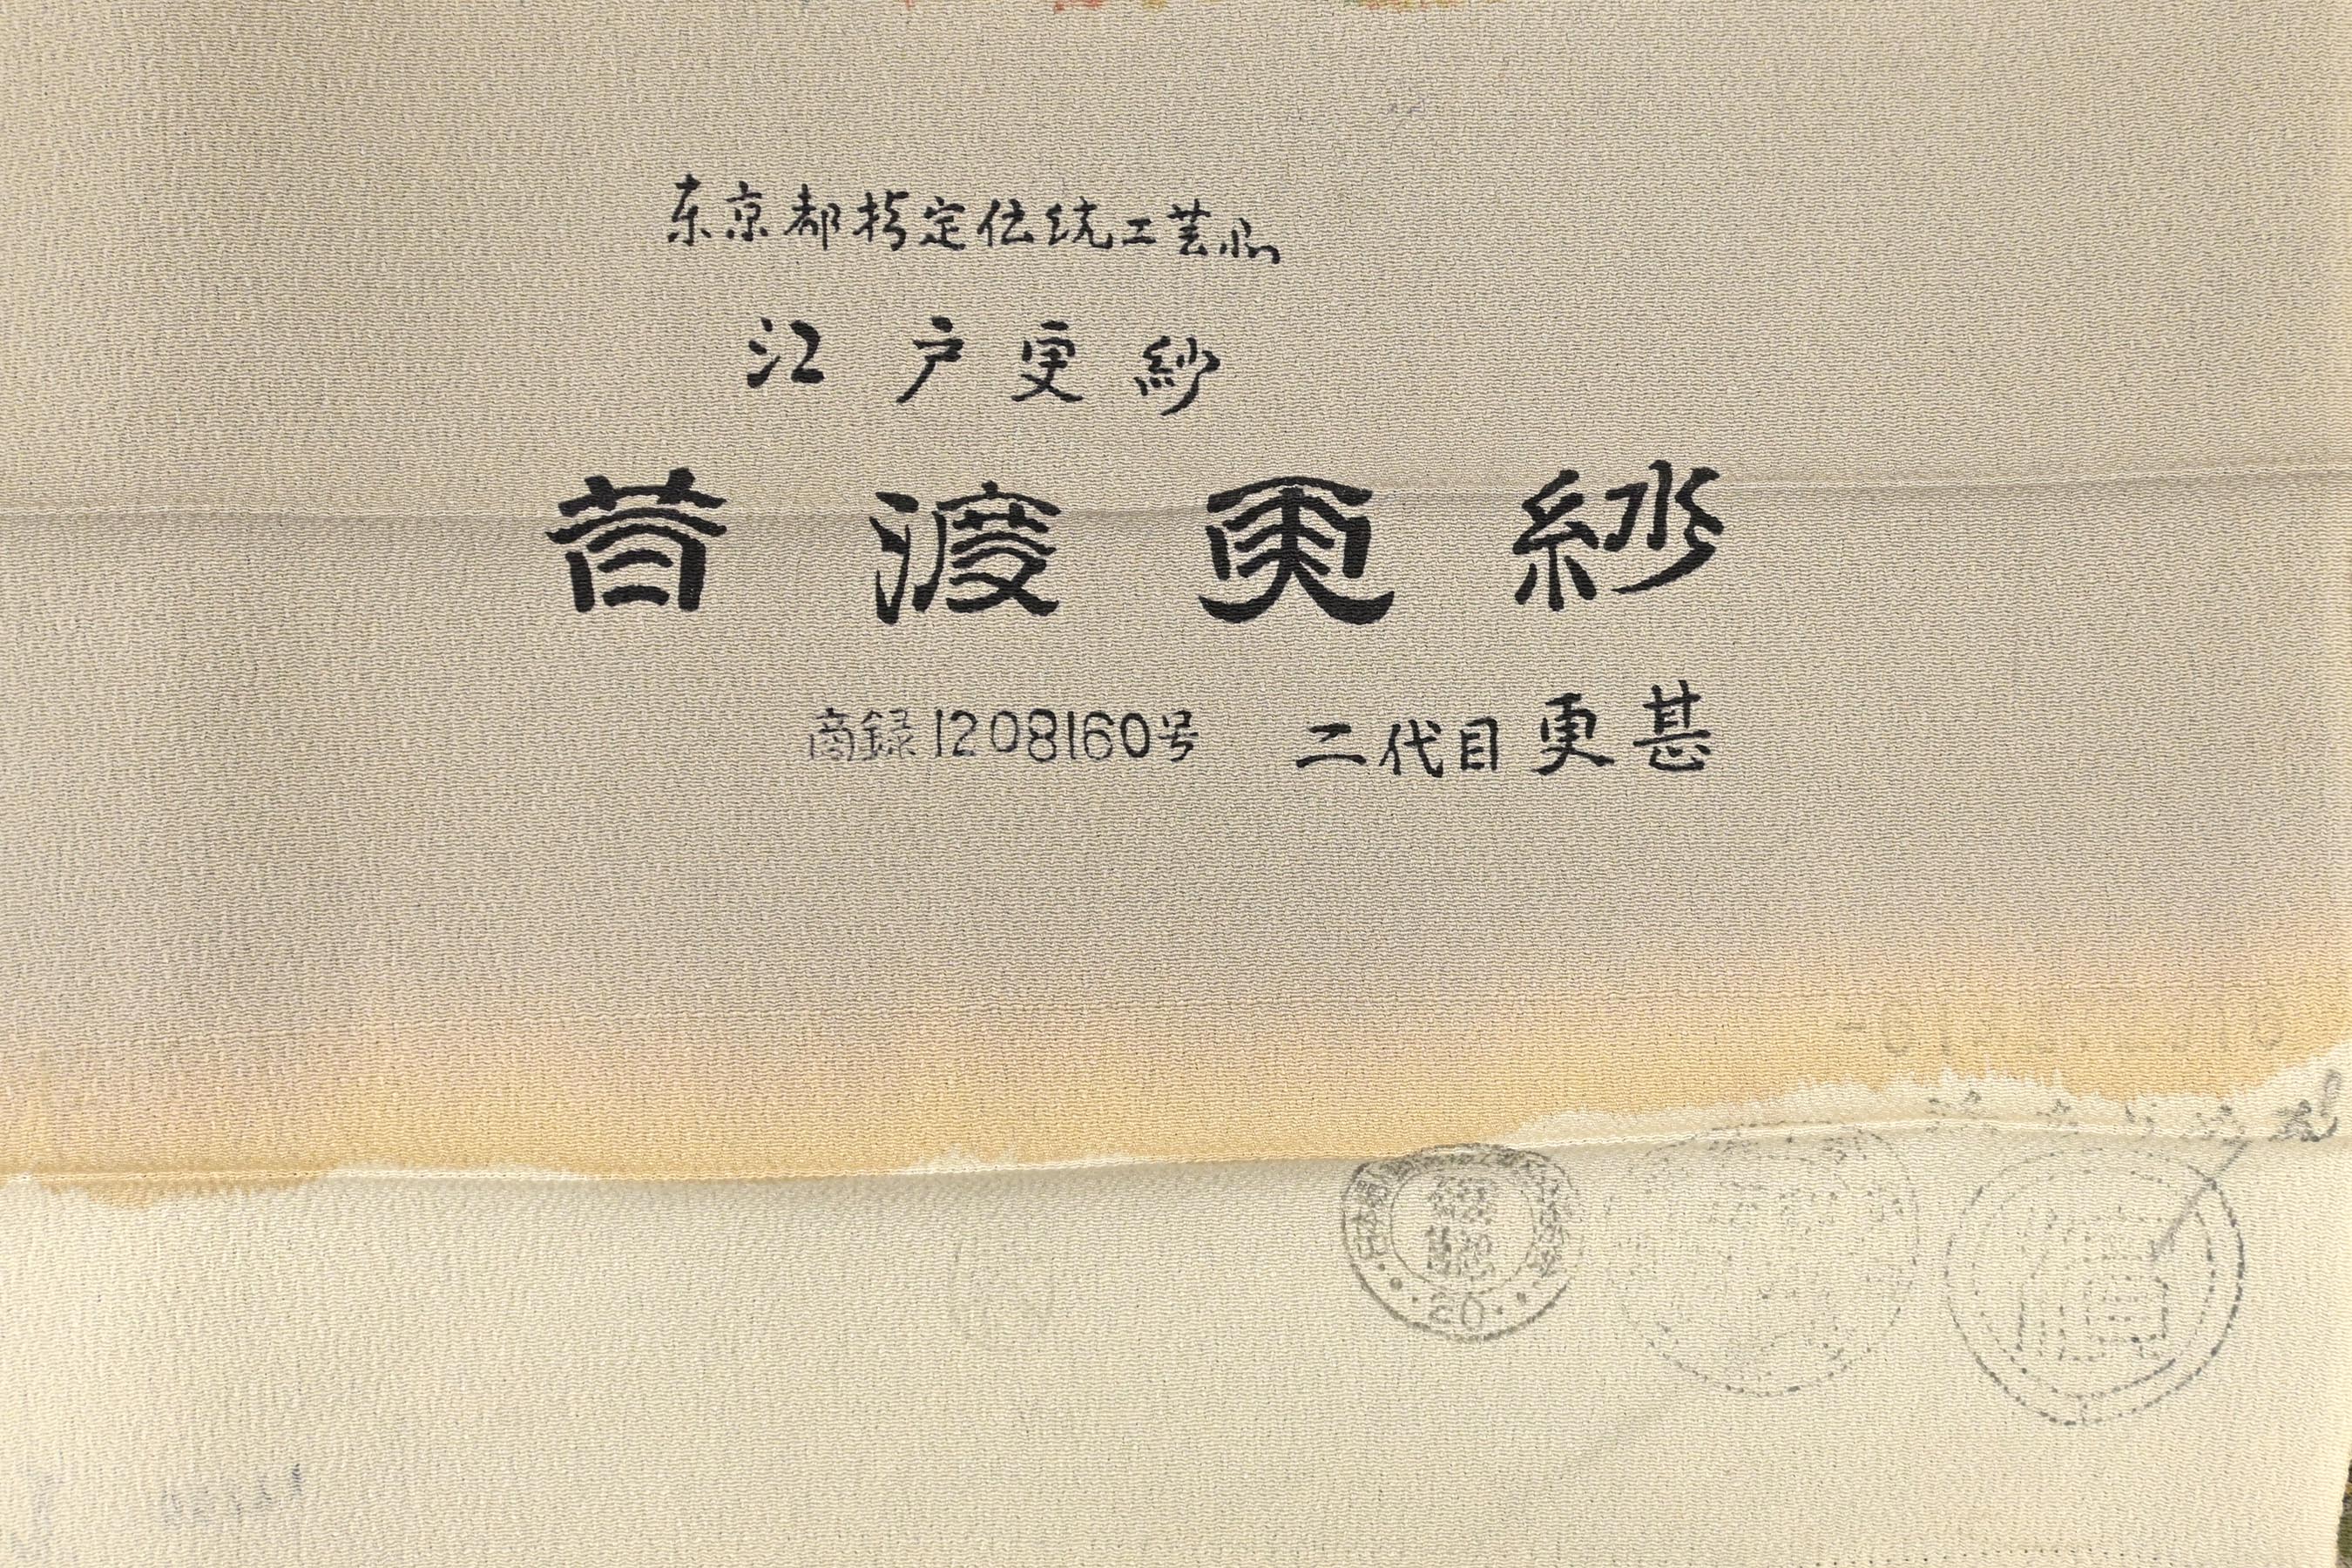 东京都指定伝統工芸品
江戸更紗
昔渡更紗
商録1208160号 二代目更甚
20